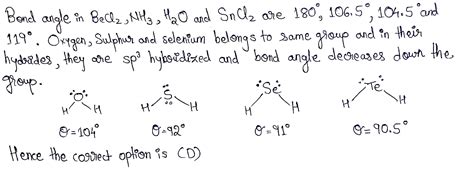 Bond angle in BeCl₂, NH₃, H₂O and SnCl₂ are 180°, 106.5°, 104.5° and
119°. Oxygen, Sulphur and selenium belongs to same group and in their
hydrides, they are sp³ hybridized and bond angle decreases down the
group.
O S Se Te
H H H H H H H H
θ=104° θ=92° θ=91° θ=90.5°
Hence the correct option is (D)